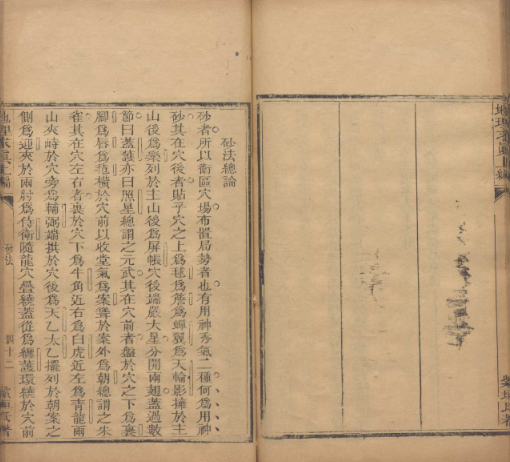 地理求真上編
砂法總論
砂者所以衛區穴場布置局勢者也有用神秀氣二種何爲用神
砂其在穴後者貼乎穴之上爲毬爲簷爲蟬翼爲天輪影擁於主
山後爲樂列於主山後爲屏帳穴後端嚴大星分開兩翅蓋過數
節曰蓋護亦曰照星總謂之元武其在穴前者盤於穴之下爲
脚爲唇爲氊橫於穴前以收堂氣爲案聳於案外爲朝總謂之朱
雀其在穴左右者裹於穴下爲牛角近右爲白虎近左爲青龍兩
山夾時於穴旁爲輔弼端拱於穴後爲天乙太乙擺列於朝案之
側爲迎夾於兩肘爲侍衛隨龍穴疊繞蓋從爲纏護環繞於穴前
地理求真上編
砂法
四十二